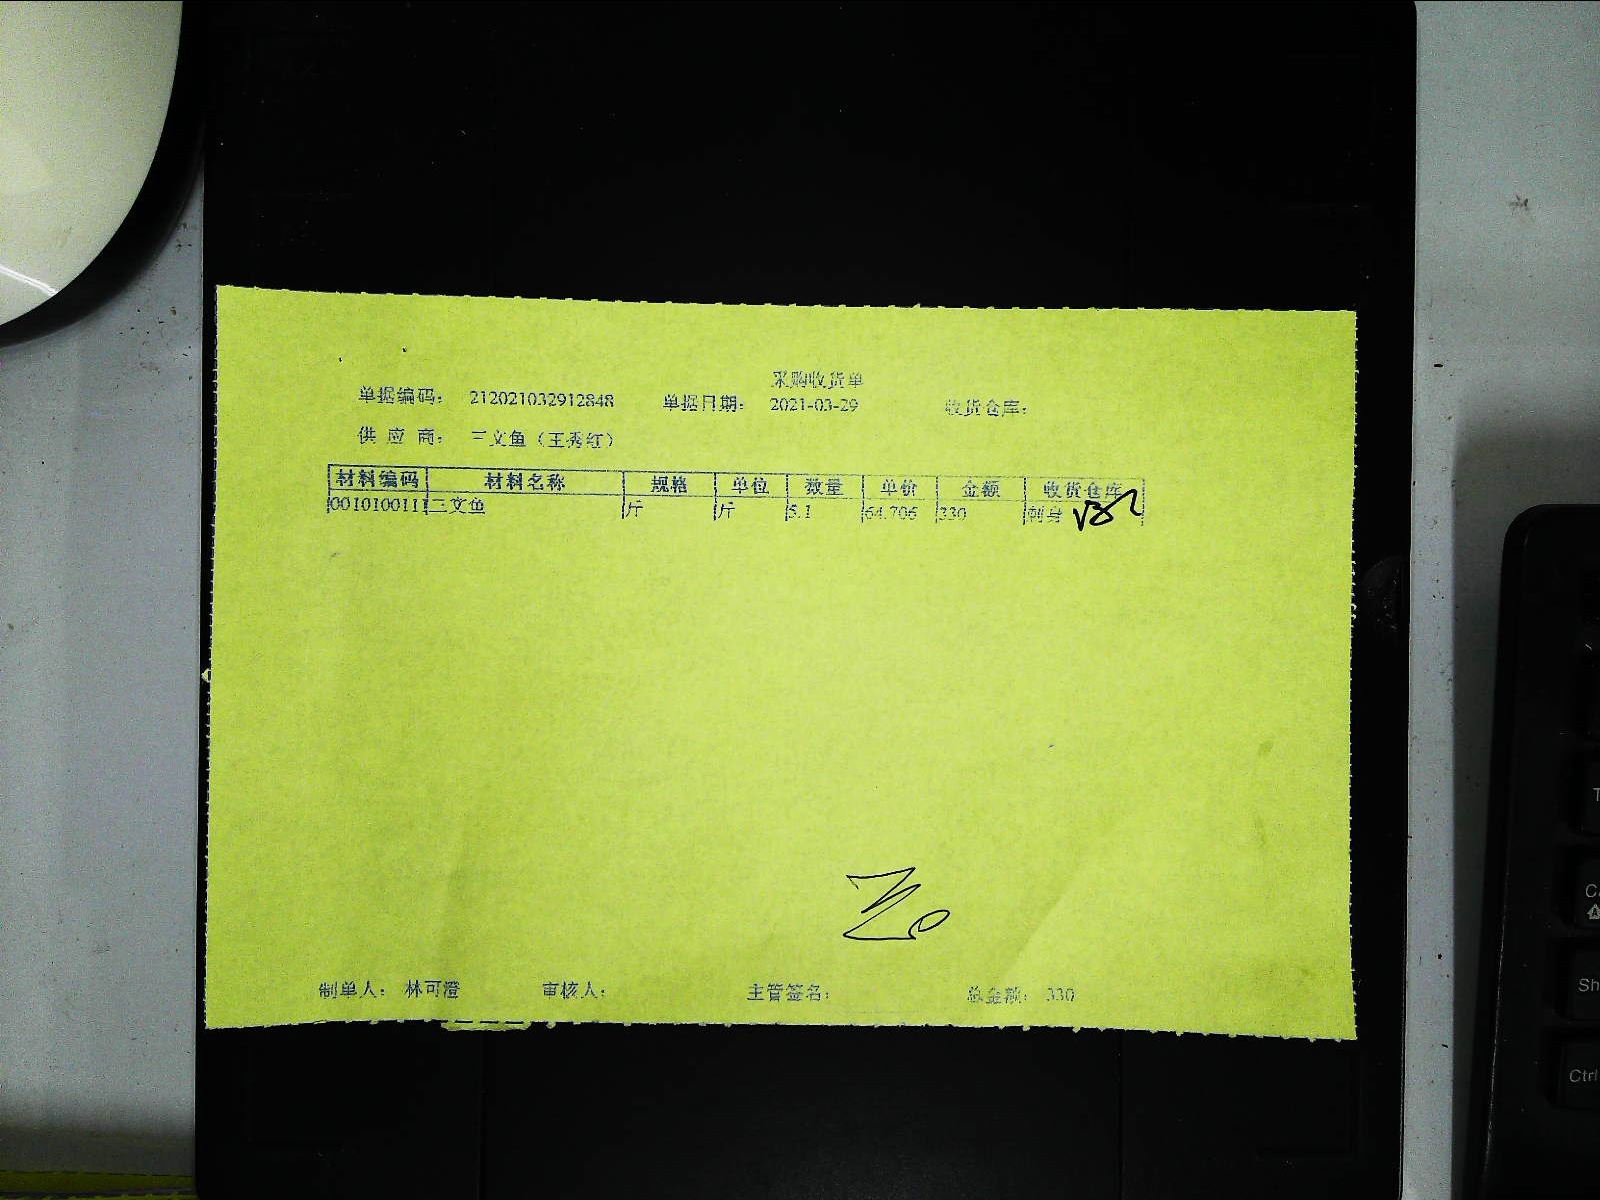 采购收货单
单据编码： 212021032912848 单据日期： 2021-03-29 收货仓库：
供 应 商： 三文鱼（王秀红）
材料编码 材料名称 规格 单位 数量 单价 金额 收货仓库
001010011 三文鱼 斤 斤 5.1 64.706 330 刺身
制单人： 林可澄 审核人： 主管签名： 总金额： 330
Sh
Ctrl